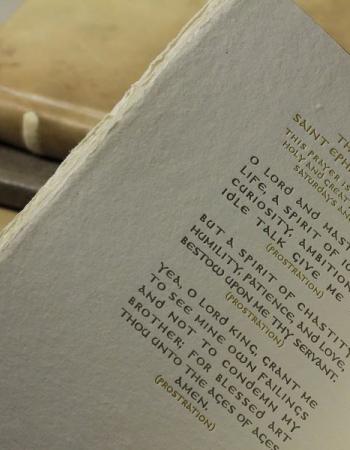 TH
SAINT EPH
THIS PRAYER IS
HOLY AND GREAT
SATURDAYS AN
O LORD AND MAST
LIFE, A SPIRIT OF I
CURIOSITY, AMBITION
IDLE TALK GIVE ME
(PROSTRATION)
BUT A SPIRIT OF CHASTITY
HUMILITY, PATIENCE, AND LOVE,
BESTOW UPON ME THY SERVANT.
(PROSTRATION)
YEA, O LORD KING, GRANT ME
TO SEE MINE OWN FAILINGS
AND NOT TO CONDEMN MY
BROTHER; FOR BLESSED ART
THOU UNTO THE AGES OF AGES
AMEN.
(PROSTRATION)